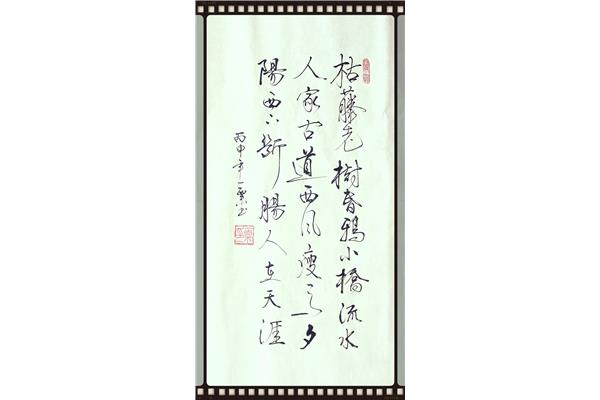 枯藤老樹昏鴉小橋流水
人家古道西风瘦马夕
陽西下斷腸人在天涯
丙申年一粟书